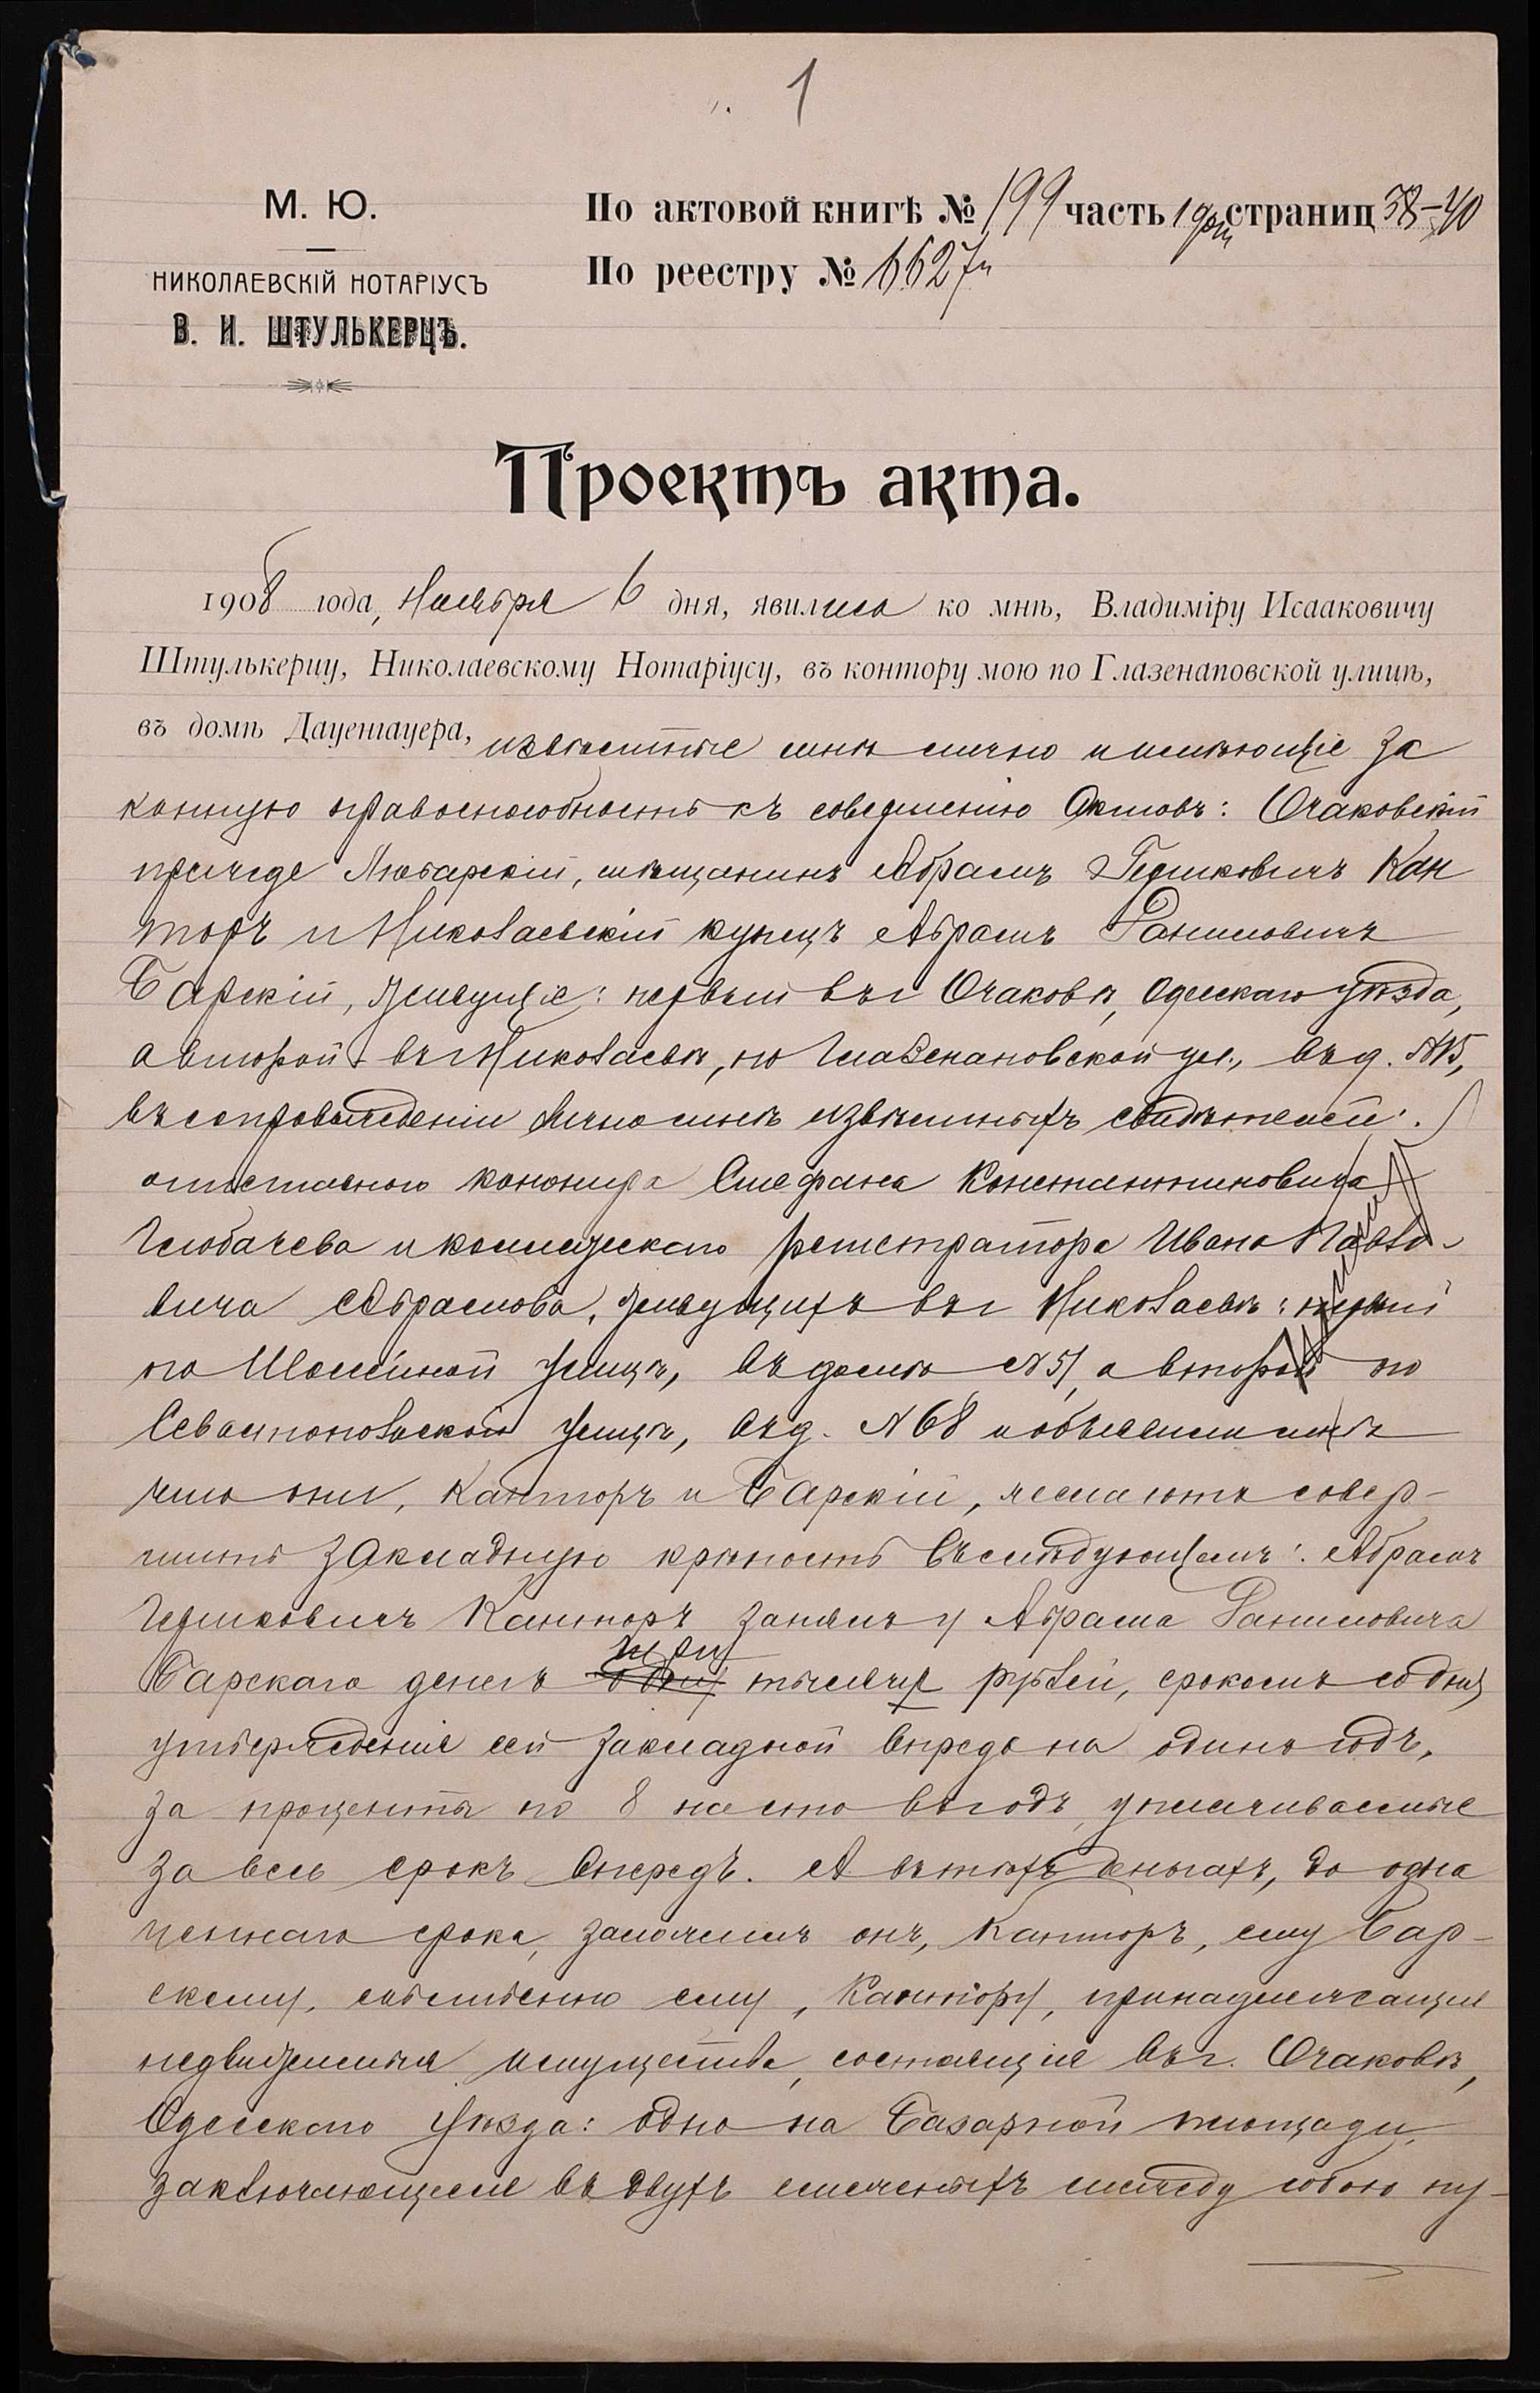 1
М. Ю.
НИКОЛАЕВСКІЙ НОТАРІУСЪ
В. И. ШТУЛЬКЕРЦЪ.
По актовой книгѣ № 199 часть 1 страниц 38-40
По реестру № 6627
Проектъ акта.
1908 года, Ноября 6 дня, явились ко мнѣ, Владиміру Исааковичу
Штулькерцу, Николаевскому Нотаріусу, въ контору мою по Глазенаповской улицѣ,
въ домѣ Дауенгауера, извѣстные мнѣ лично и имѣющіе за
конную правоспособность къ совершенію актовъ: Очаковскій
прежде Любарскій, мѣщанинъ Абрамъ Гершковичъ Кан
торъ и Николаевскій купецъ Абрамъ
Барскій, живущіе: первый въ г. Очаковѣ, Одесскаго уѣзда,
а второй въ г. Николаевѣ, по Глазенаповской ул., въ д. №15,
въ сопровожденіи лично мнѣ извѣстныхъ свидѣтелей:
отставного канонира Стефана Константиновича
и коллежскаго регистратора Ивана Павло-
вича Абрамова, живущихъ въ г. Николаевѣ: первый
по улицѣ, въ домѣ №51, а второй по
Севастопольской улицѣ, въ д. №68 и объявили мнѣ
что они, Канторъ и Барскій, желаютъ совер-
шить закладную крѣпость въ слѣдующемъ: Абрамъ
Гершковичъ Канторъ занялъ у Абрама
три
Барскаго денегъ одну тысячи рублей, срокомъ со дня
утвержденія сей закладной впредь на одинъ годъ,
за проценты по 8 на сто въ годъ, уплачиваемые
за весь срокъ впередъ. А въ тѣхъ деньгахъ, до озна
ченнаго срока, заложилъ онъ, Канторъ, ему Бар-
скому, собственно ему, Кантору, принадлежащія
недвижимыя имущества, состоящія въ г. Очаковѣ,
Одесскаго уѣзда: одно на Базарной площади,
заключающееся въ двухъ смежныхъ между собою пу-